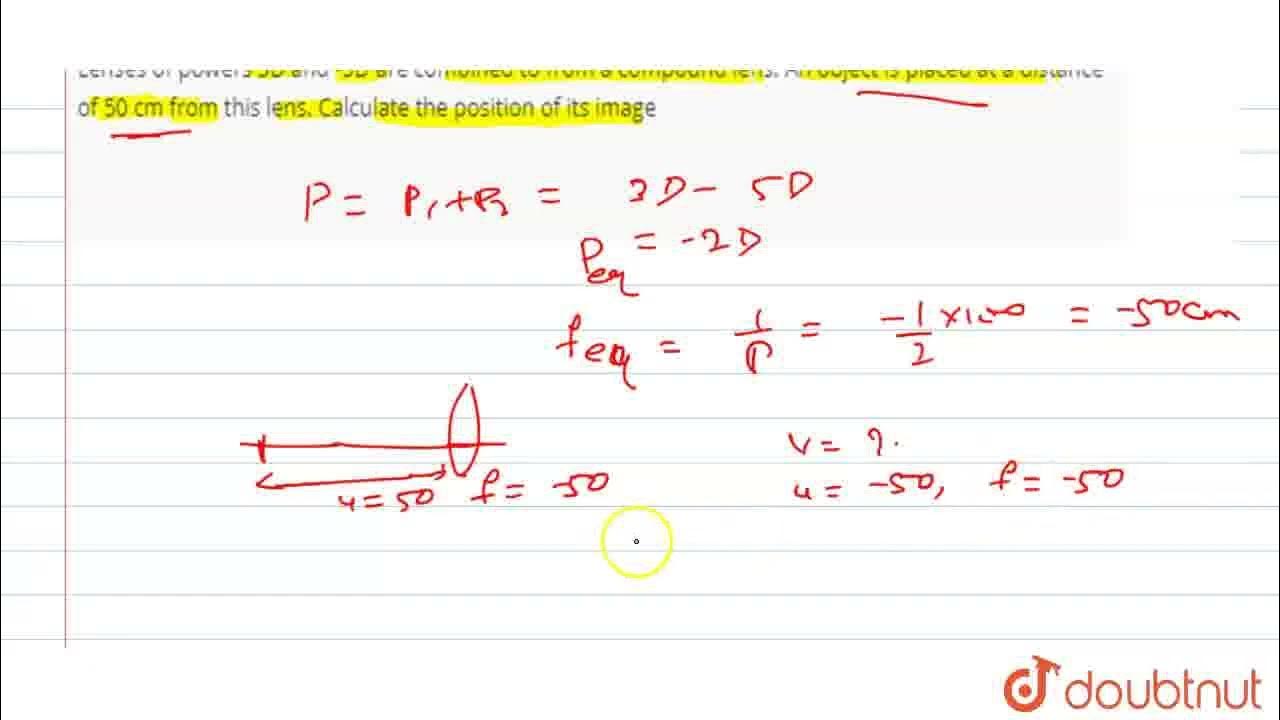 Lenses of powers 3D and -5D are combined to from a compound lens. An object is placed at a distance
of 50 cm from this lens. Calculate the position of its image
P = P₁+P₂ = 3D - 5D
Peq = -2D
feq = 1/P = -1/2 ×100 = -50cm
v = ?.
u = 50 f = -50
u = -50, f = -50
doubtnut